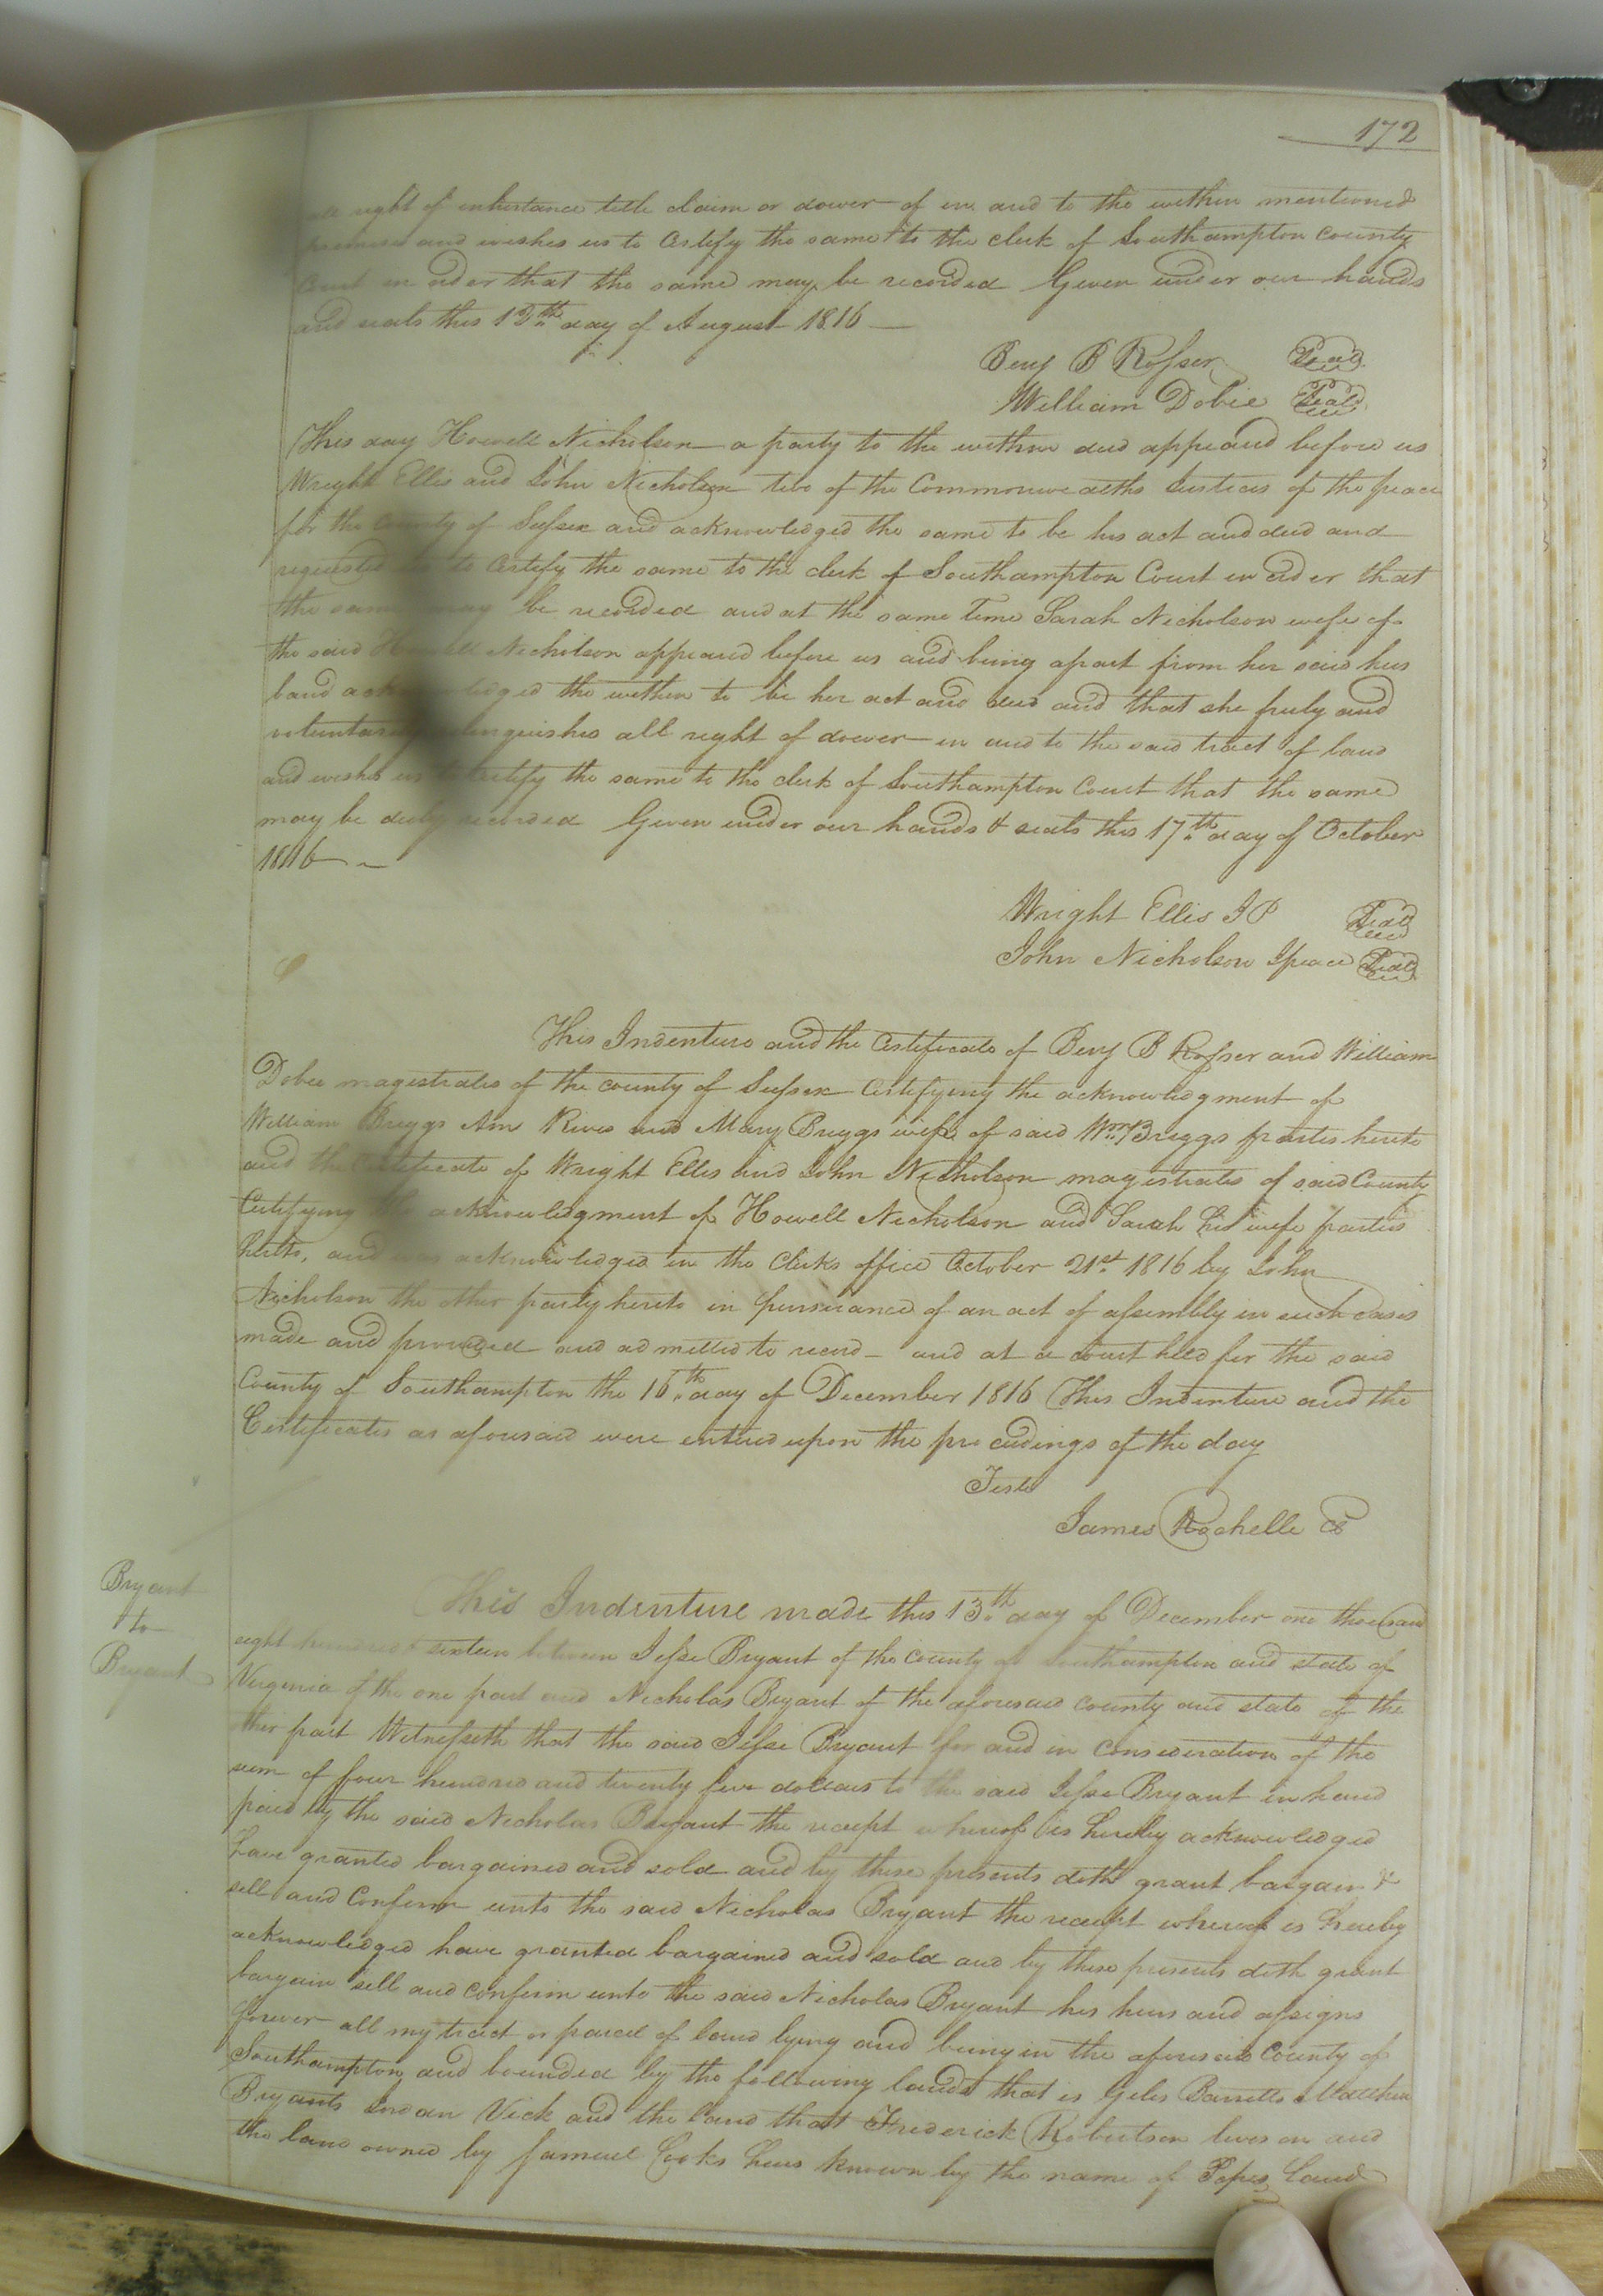 172
all right of inheritance title claim or dower of in and to the within mentioned
premises and wishes us to Certify the same to the clerk of Southampton county
Court in order that the same may be recorded Given under our hands
and seals this 12th day of August 1816
Benj B Rosser Seal
William Dobie Seal
This day Howell Nicholson a party to the within deed appeared before us
Wright Ellis and John Nicholson two of the Commonwealths Justices of the peace
for the County of Sussex and acknowledged the same to be his act and deed and
requested us to Certify the same to the clerk of Southampton Court in order that
the same may be recorded and at the same Time Sarah Nicholson wife of
the said Howell Nicholson appeared before us and being apart from her said hus
band acknowledged the within to be her act and deed and that she freely and
voluntarily relinquishes all right of dower in and to the said tract of land
and wishes us to Certify the same to the clerk of Southampton Court that the same
may be duly recorded Given under our hands & seals this 17th day of October
1816
Wright Ellis JP Seal
John Nicholson Jpeace Seal
This Indenture and the Certificate of Benj B Rosser and William
Dobie magistrates of the county of Sussex Certifying the acknowledgment of
William Briggs Ann Rives and Mary Briggs wife of said Wm Briggs parties hereto
and the Certificate of Wright Ellis and John Nicholson magistrates of said County
Certifying the acknowledgment of Howell Nicholson and Sarah his wife parties
hereto, and was acknowledged in the Clerks office October 21st 1816 by John
Nicholson the other party hereto in pursuance of an act of assembly in such cases
made and provided and admitted to record - and at a court held for the said
County of Southampton the 16th day of December 1816 This Indenture and the
Certificates as aforesaid were entered upon the proceedings of the day
Teste
James Rochelle CC
Bryant
to
Bryant
This Indenture made this 13th day of December one thousand
eight hundred & sixteen between Jesse Bryant of the county of Southampton and state of
Virginia of the one part and Nicholas Bryant of the aforesaid county and state of the
other part Witnesseth that the said Jesse Bryant for and in consideration of the
sum of four hundred and twenty five dollars to the said Jesse Bryant in hand
paid by the said Nicholas Bryant the receipt whereof is hereby acknowledged
have granted bargained and sold and by these presents doth grant bargain &
sell and Confirm unto the said Nicholas Bryant the receipt whereof is hereby
acknowledged have granted bargained and sold and by these presents doth grant
bargain sell and confirm unto the said Nicholas Bryant his heirs and assigns
forever all my tract or parcel of land lying and being in the aforesaid County of
Southampton and bounded by the following lands that is Giles Barretts Matthew
Bryants Jordan Vick and the land that Frederick Robertson lives on and
the land owned by Samuel Cooks heirs known by the name of Popes land